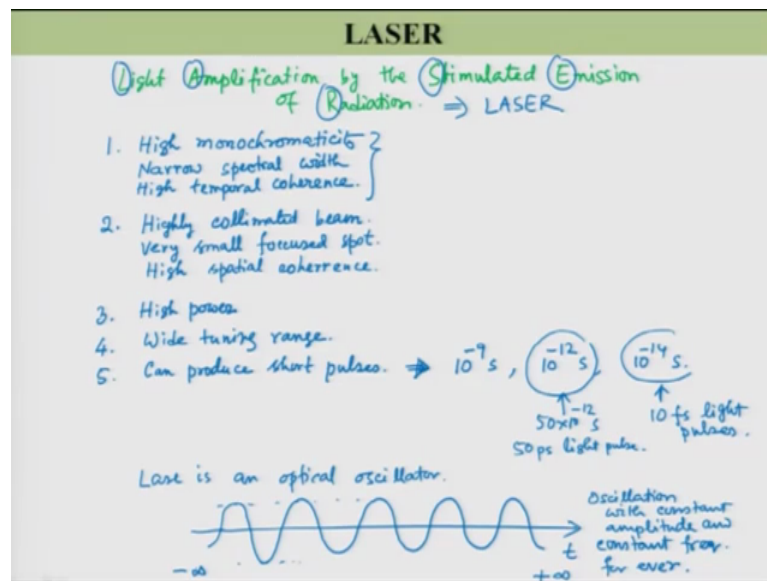 LASER
Light Amplification by the Stimulated Emission
of Radiation. ⇒ LASER
1. High monochromaticity
Narrow spectral width
High temporal coherence.
2. Highly collimated beam.
Very small focussed spot.
High spatial coherrence.
3. High power
4. Wide tuning range.
5. Can produce short pulses. → 10⁻⁹ s, 10⁻¹² s, 10⁻¹⁴ s.
50×10⁻¹² s
50 ps light pulse.
10 fs light
pulses.
Lase is an optical oscillator.
Oscillation
with constant
amplitude an
constant freq.
for ever.
t
-∞
+∞